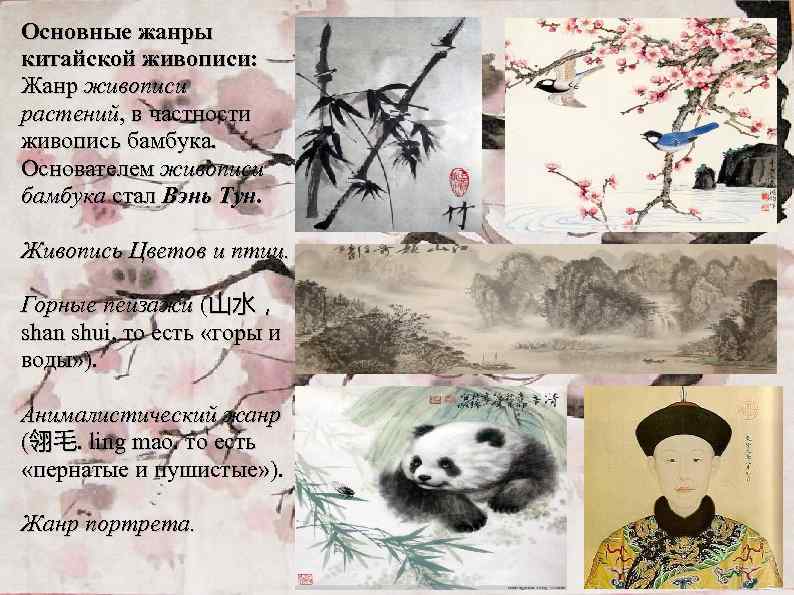 Основные жанры
китайской живописи:
Жанр живописи
растений, в частности
живопись бамбука.
Основателем живописи
бамбука стал Вэнь Тун.
Живопись Цветов и птиц.
Горные пейзажи (山水 ,
shan shui, то есть «горы и
воды» ).
Анималистический жанр
(翎毛. ling mao. то есть
«пернатые и пушистые» ).
Жанр портрета.
竹